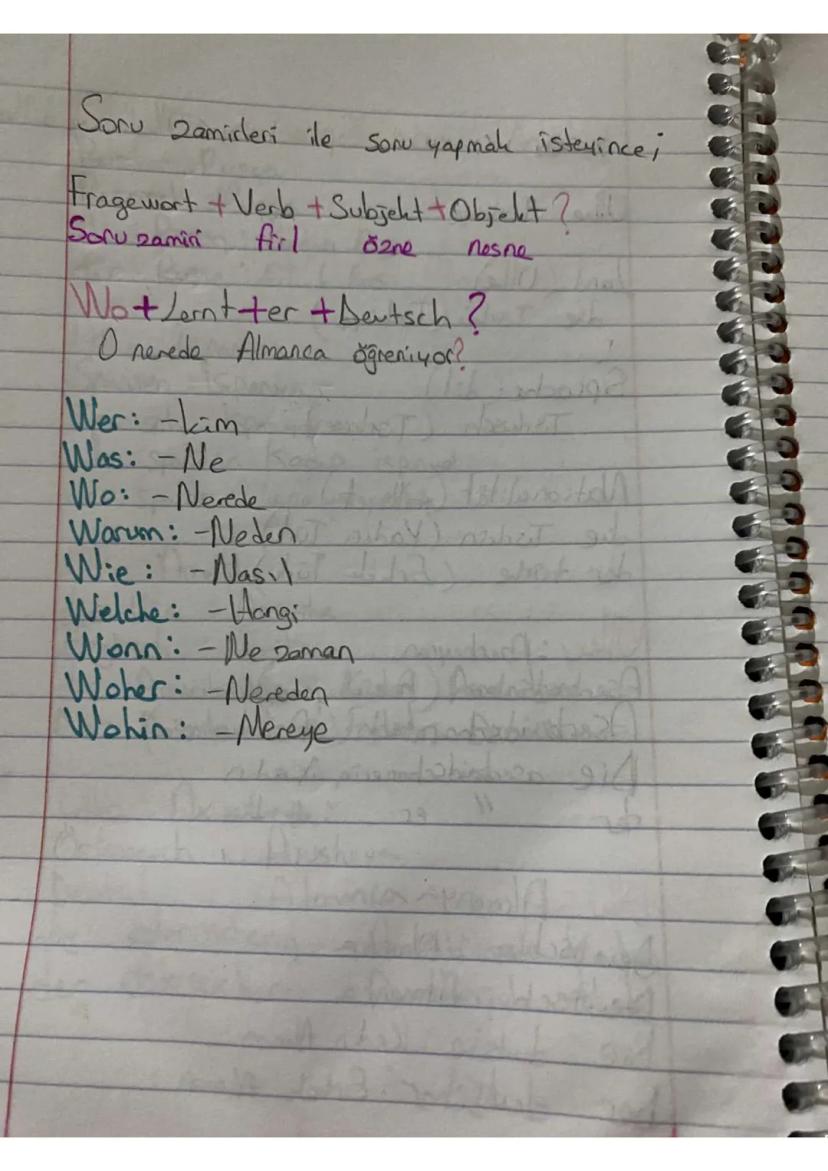 Soru zamirleri ile soru yapmak isteyince;
Fragewort + Verb + Subjekt + Objekt ?
Soru zamiri fiil özne nesne
Wo + Lernt + er + Deutsch ?
O nerede Almanca öğreniyor?
Wer: - kim
Was: - Ne
Wo: - Nerede
Warum: - Neden
Wie: - Nasıl
Welche: - Hangi
Wann: - Ne zaman
Woher: - Nereden
Wohin: - Nereye